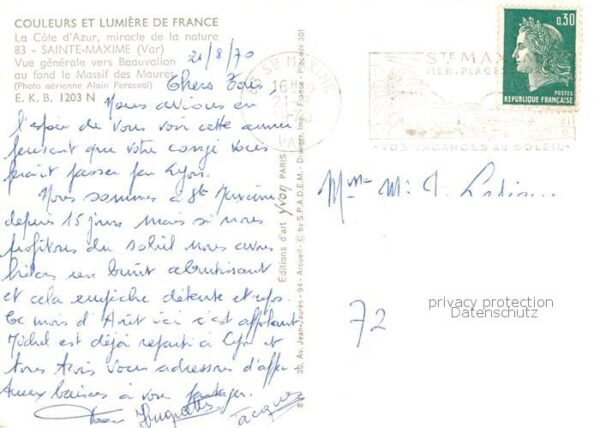 COULEURS ET LUMIÈRE DE FRANCE
La Côte d'Azur, miracle de la nature
83 - SAINTE-MAXIME (Var)
Vue générale vers Beauvallon
au fond le Massif des Maures
(Photo aérienne Alain Perceval)
E. K. B. 1203 N
21/8/70
Chers Tous,
Nous avions eu
l'espoir de vous voir cette année
pensant que votre congé vous
ferait passer par Lyon.
Nous sommes à Ste Maxime
depuis 15 jours mais si nous
profitons du soleil nous avons
hélas un bruit abrutissant
et cela empêche détente et repos.
Ce mois d'Août ici c'est affolant
Michel est déjà reparti à Lyon et
tous trois vous adressons d'affec
tueux baisers à vous partager.
Huguette
Jacques
Editions d'art yvon PARIS
30, Av. Jean-Jaurès - 94 - Arcueil - © by S.P.A.D.E.M. - Draeger, Imp. - France - Planète 301
STE MAXIME
16H
21-8
VAR
STE MAXIME
MER-PLAGES
VOS VACANCES AU SOLEIL
0,30
POSTES
REPUBLIQUE FRANÇAISE
Mme M. J.
72
privacy protection
Datenschutz